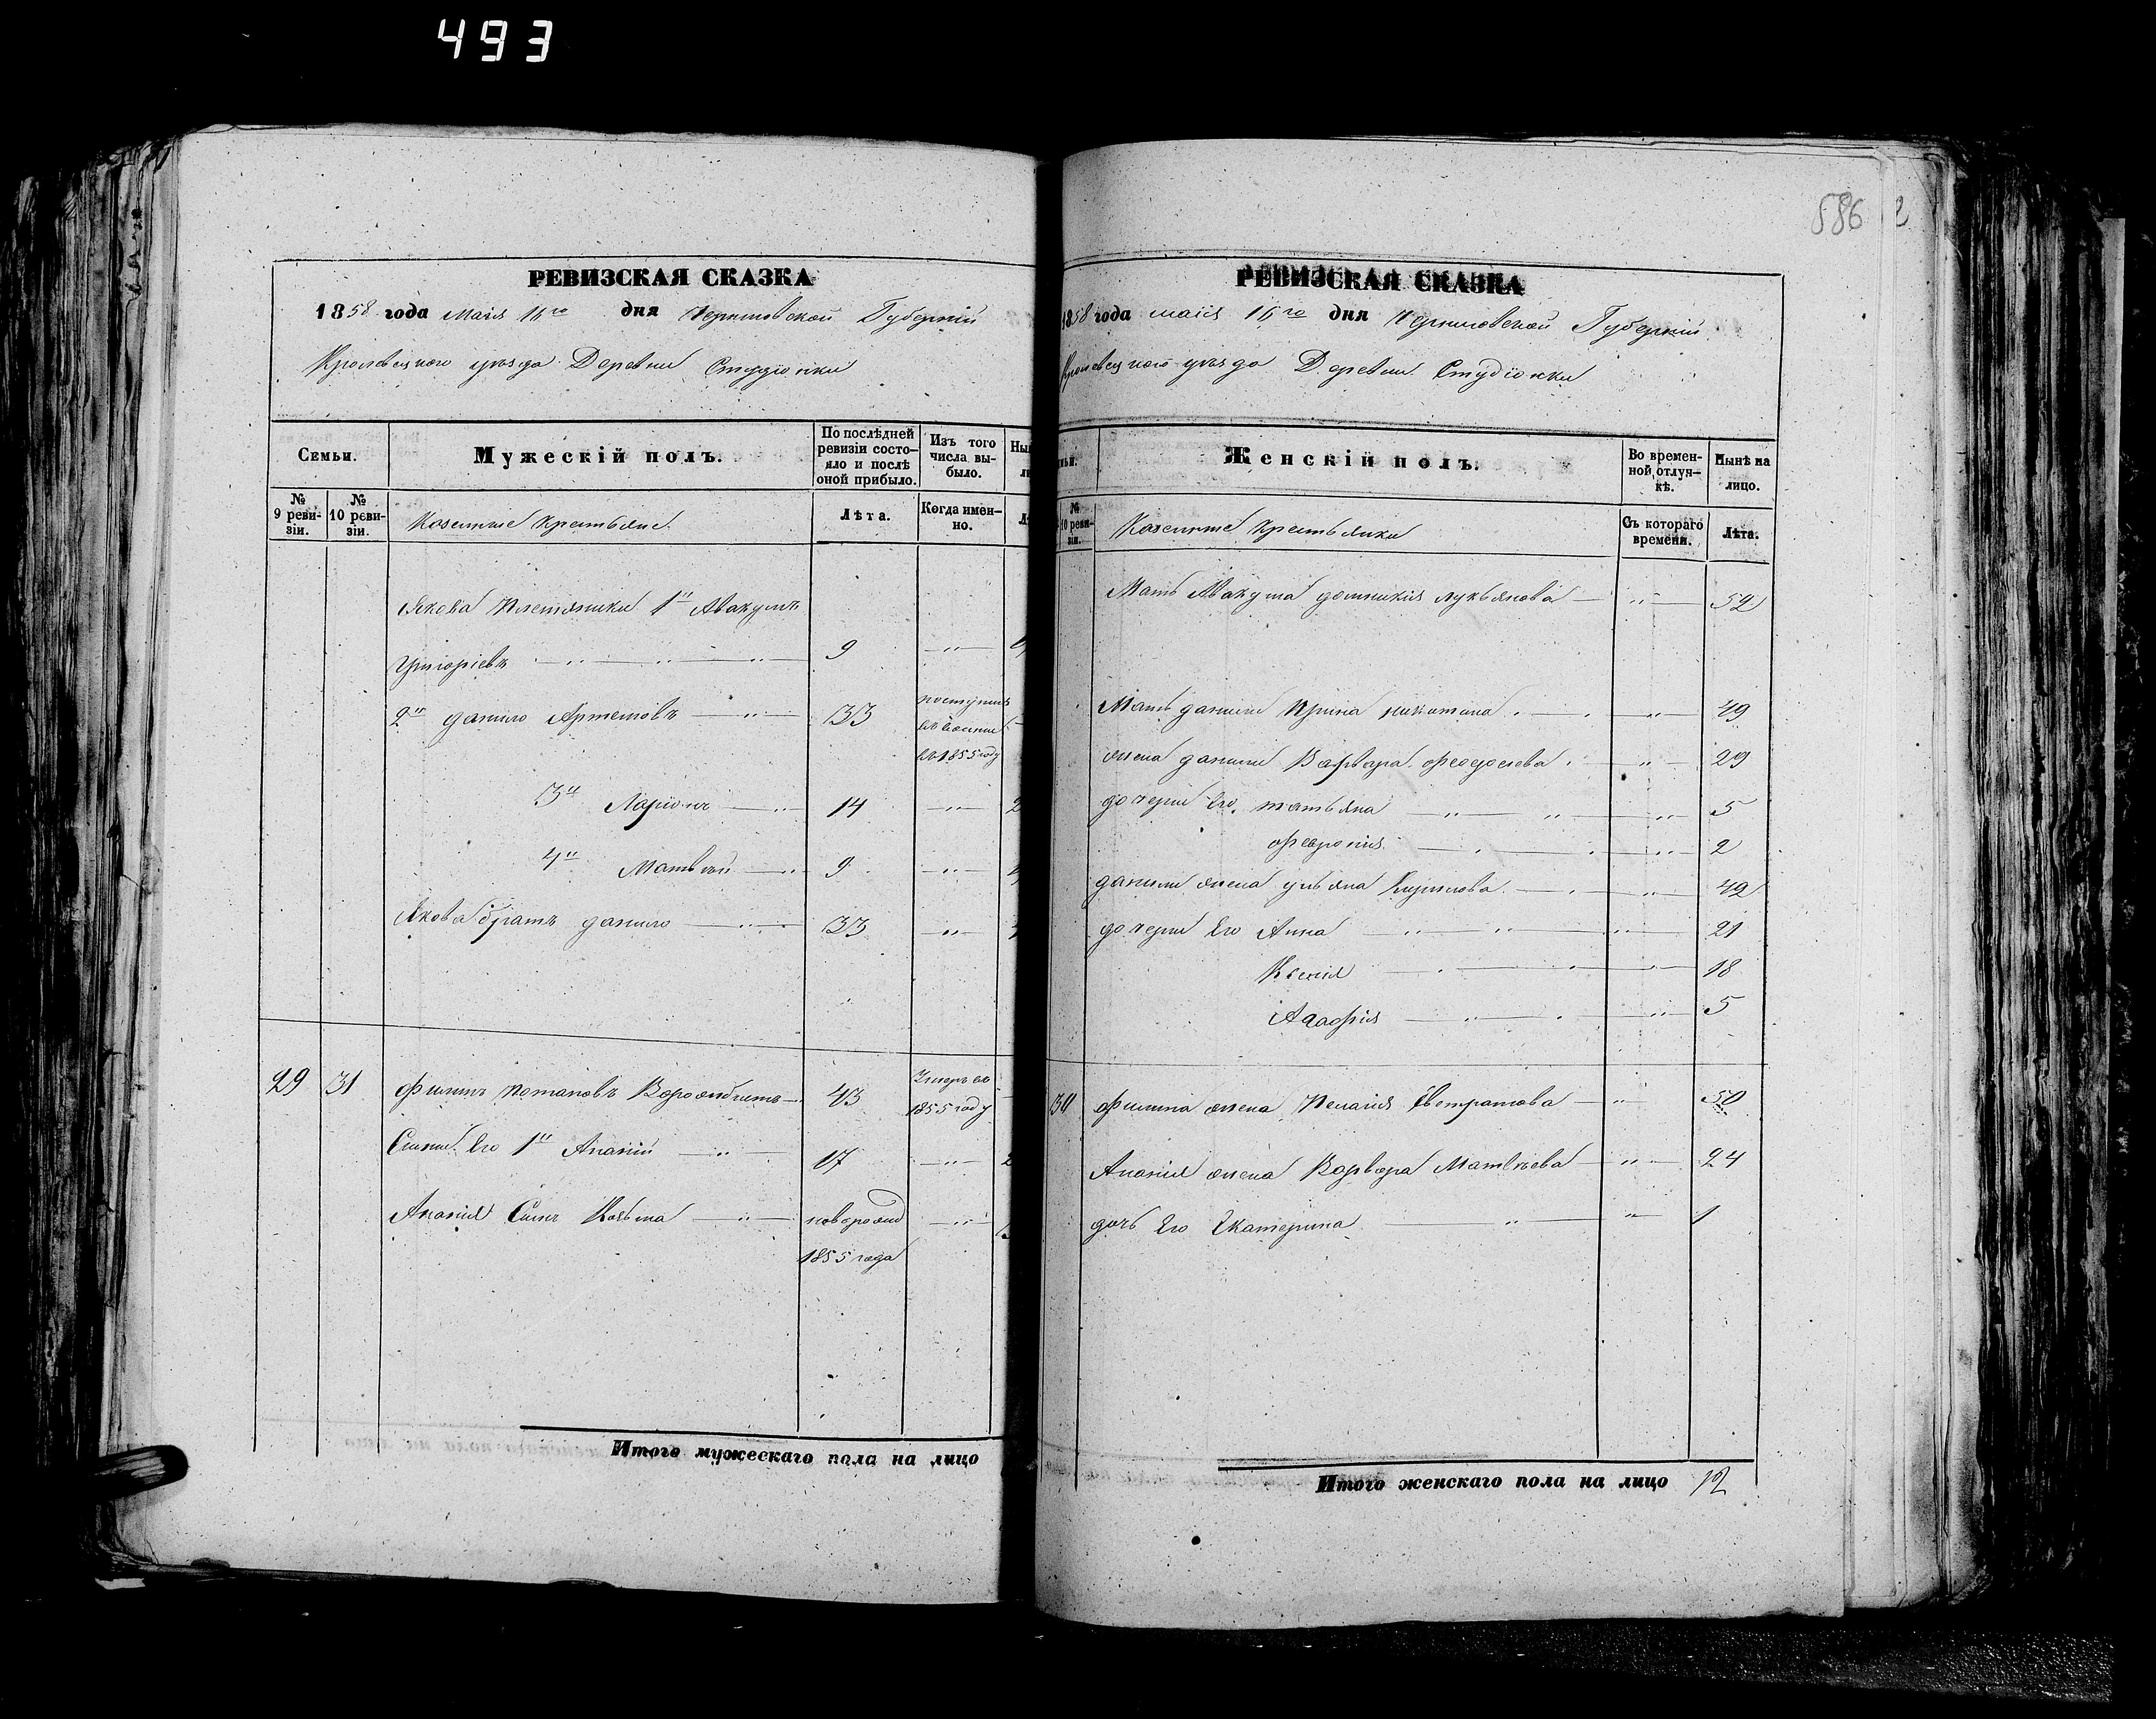 493
586
2
РЕВИЗСКАЯ СКАЗКА
1858 года маія 16го дня Черниговской Губерніи
Кролевецкого уѣзда Деревни Студіонки
Семьи.
Мужескій полъ.
По послѣдней ревизіи состояло и послѣ оной прибыло.
Изъ того числа выбыло.
№ 9 ревизіи.
№ 10 ревизіи.
Казенные крестьяне
Лѣта.
Когда именно.
Якова племянники 1й Авакумъ
Григоріевъ 9
2й данило Артемовъ 33 поступилъ
1855 году
3й Ларіонъ 14
4й Матвѣй 9
Якова братъ данило 33
29 31 Филипъ Потаповъ Ворожбитъ 43 Умеръ въ
1855 году
Сыны Его 1й Ананій 17
Ананія Сынъ Козьма новорожд
1855 года
Итого мужескаго пола на лицо
РЕВИЗСКАЯ СКАЗКА
1858 года маія 16го дня Черниговской Губерніи
Кролевецкого уѣзда Деревни Студіонки
Женскій полъ.
Во временной отлучкѣ.
Нынѣ на лицо.
№ 10 ревизіи.
Казенные крестьянки
Съ котораго времени.
Лѣта.
Мать Авакума домникія лукьянова 52
Мать данилы Ирина никитина 49
жена данилы Варвара феодосіева 29
дочери Его татьяна 5
феврнія 2
данилы жена ульяна Кирилова 42
дочери Его Анна 21
Ксенія 18
Агафія 5
31 филипа жена Пелагія Евстратова 50
Ананія жена Варвара Матвѣева 24
дочь Его Екатерина 1
Итого женскаго пола на лицо 12